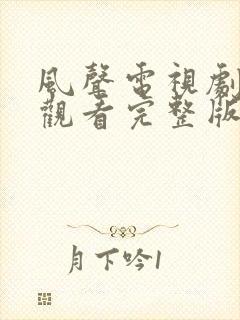 風聲電視劇
觀看完整版
月下吟1